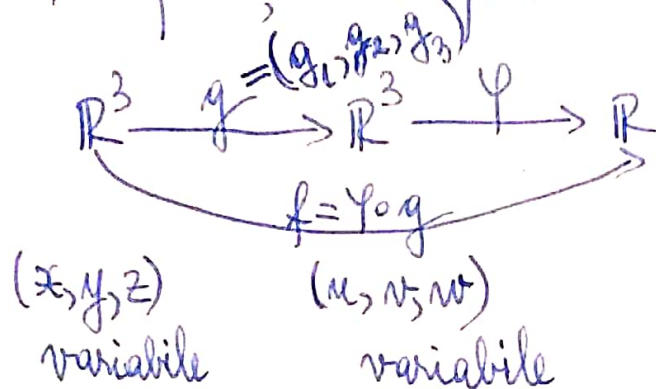 g = (g₁, g₂, g₃)
ℝ³ → ℝ³ φ → ℝ
f = φ∘g
(x, y, z) (u, v, w)
variabile variabile